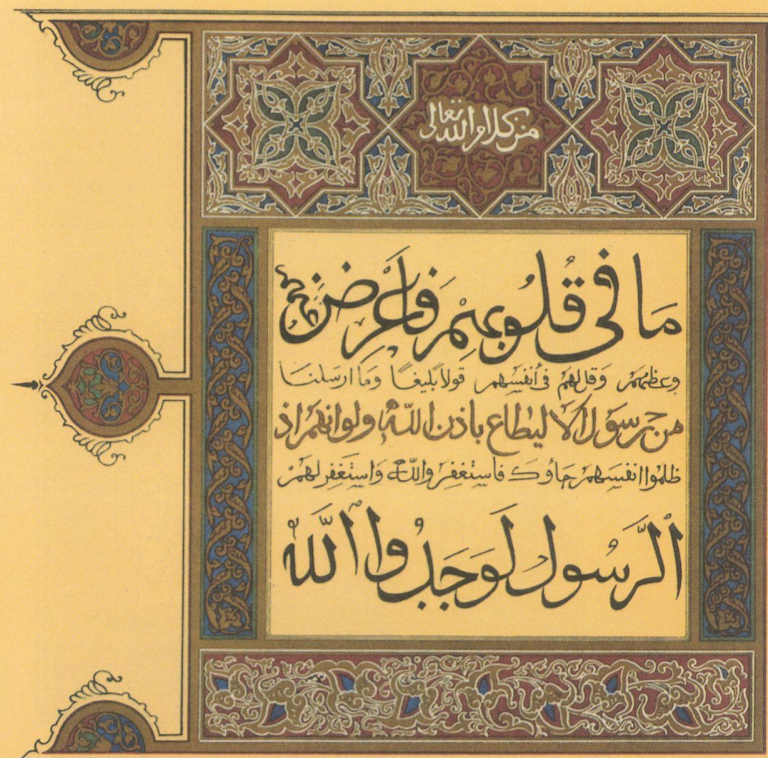 من كلام الله تعالى
مَا فِي قُلُوبِهِمْ فَاَعْرِضْ عنهم
وعظهم وقل لهم في أنفسهم قولا بليغا وما ارسلنا
من رسول الا ليطاع باذن الله ولو انهم اذ
ظلموا انفسهم جاؤك فاستغفروا الله واستغفر لهم
الرَّسُولُ لَوَجَدُوا اللَّهَ